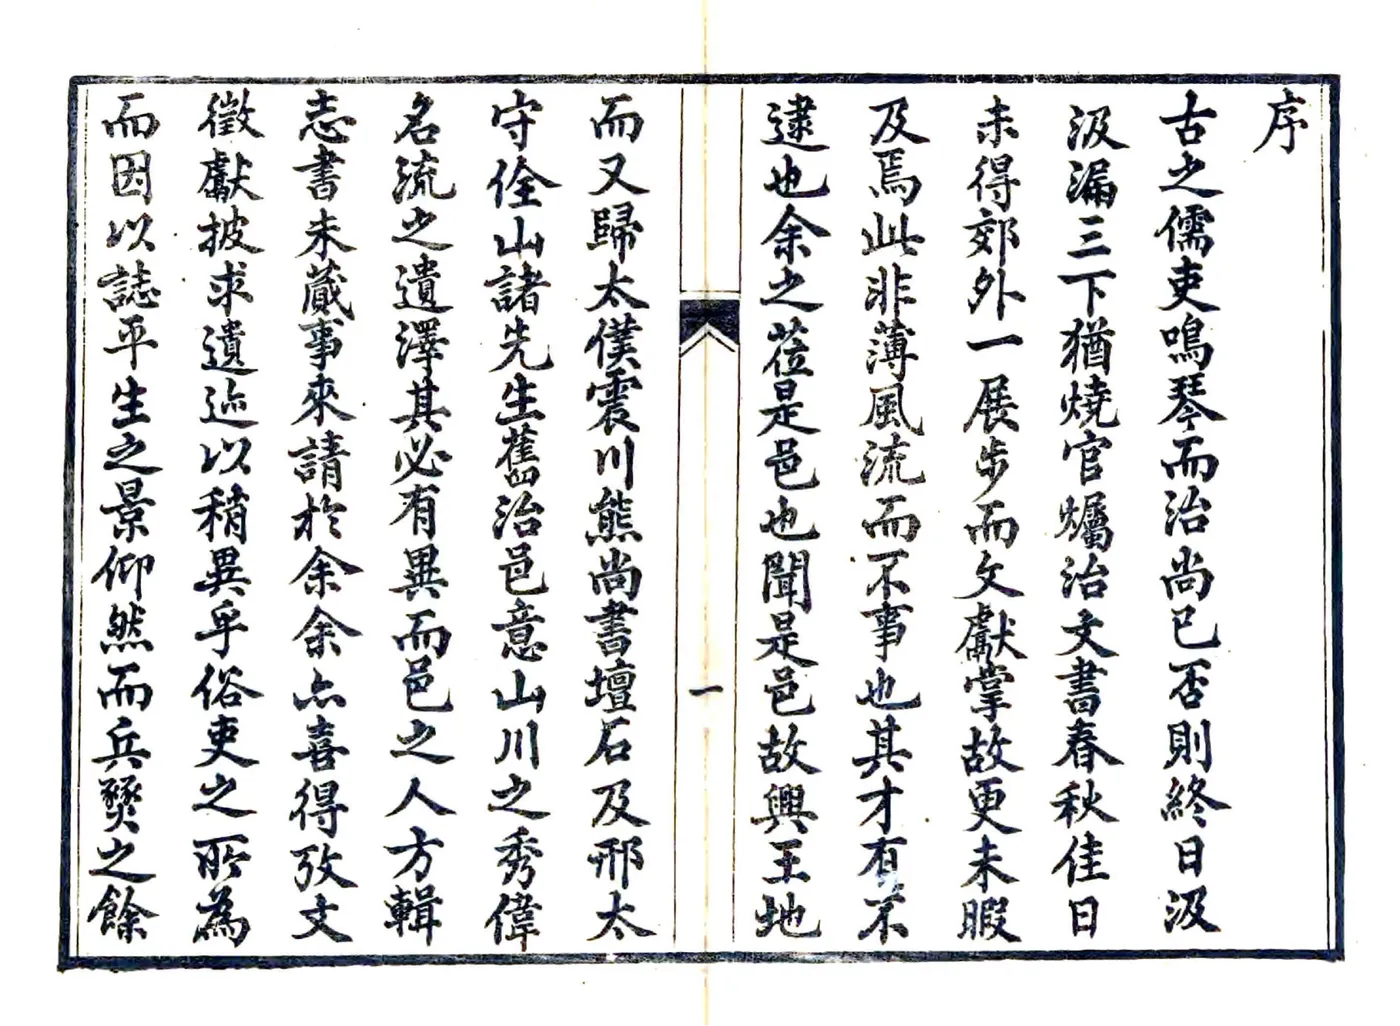 序
古之儒吏鳴琴而治尚已否則終日汲
汲漏三下猶燒官爥治文書春秋佳日
未得郊外一展步而文獻掌故更未暇
及焉此非薄風流而不事也其才有不
逮也余之蒞是邑也聞是邑故興王地
一
而又歸太僕震川熊尚書壇石及邢太
守佺山諸先生舊治邑意山川之秀偉
名流之遺澤其必有異而邑之人方輯
志書未蕆事來請於余余亦喜得攷文
徵獻披求遺迹以稍異乎俗吏之所為
而因以誌平生之景仰然而兵燹之餘